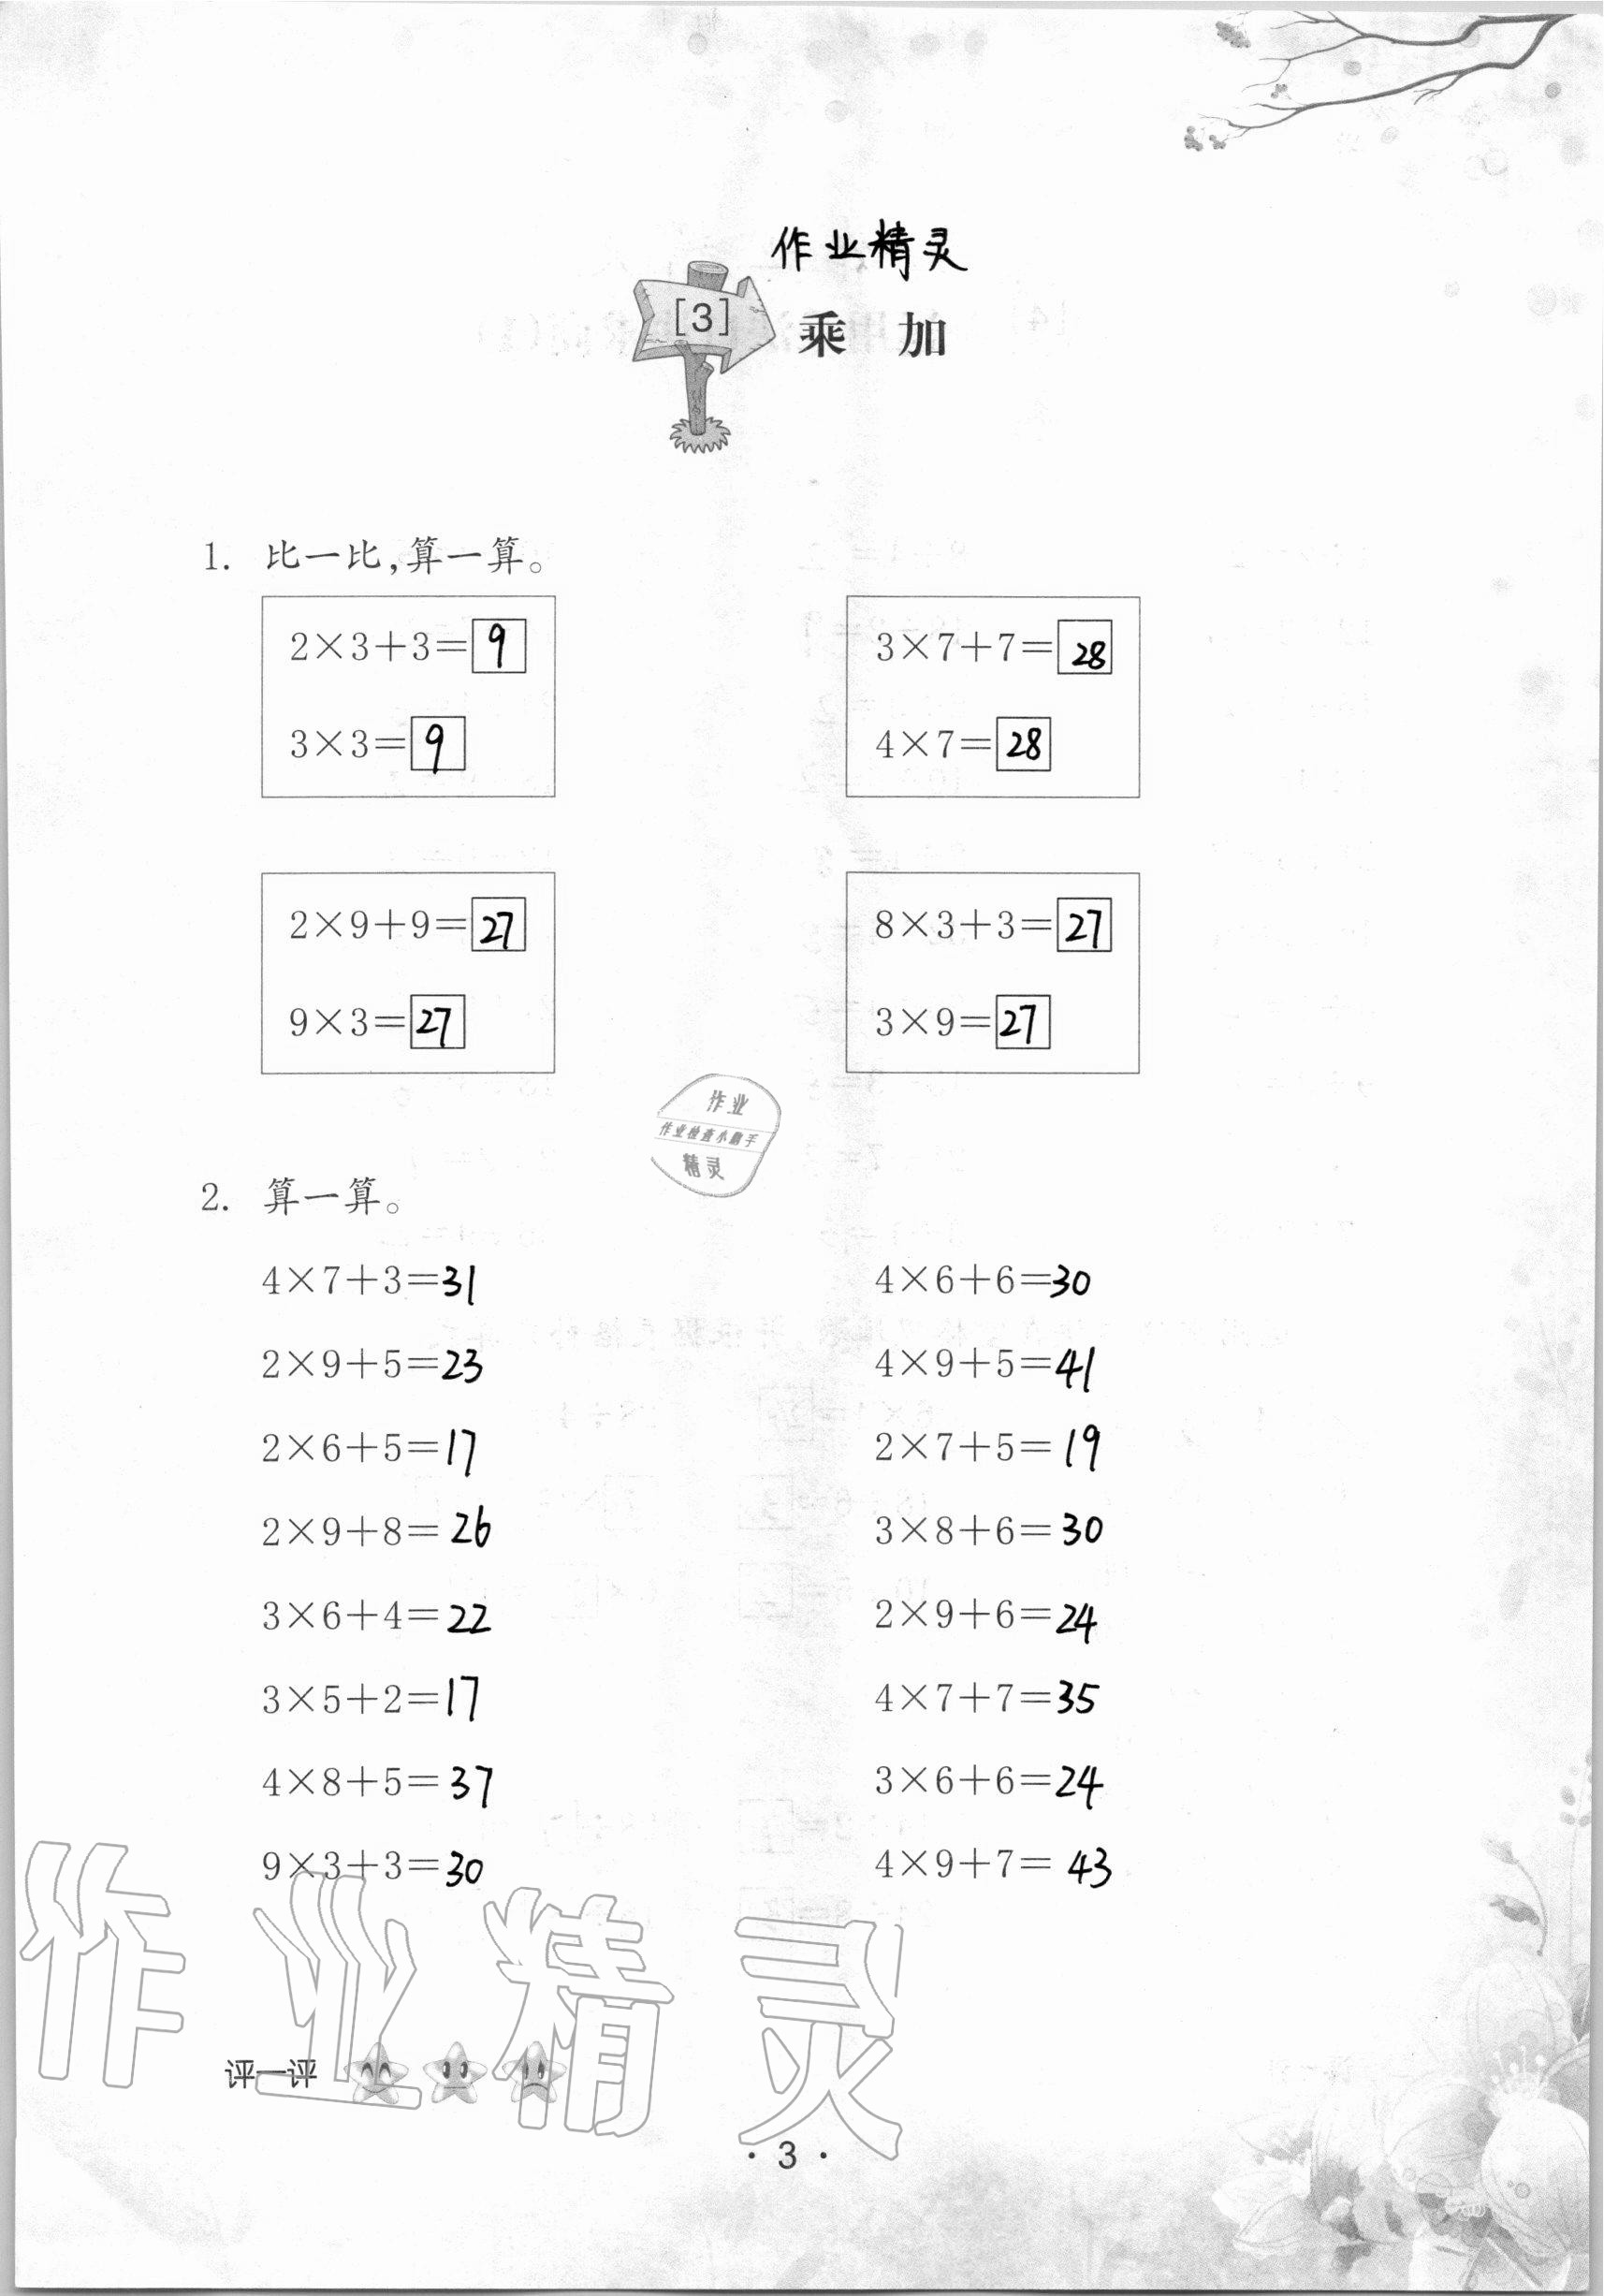 作业精灵
[3] 乘 加
1. 比一比,算一算。
2×3+3=9 3×7+7=28
3×3=9 4×7=28
2×9+9=27 8×3+3=27
9×3=27 3×9=27
作业
作业检查小助手
精灵
2. 算一算。
4×7+3=31 4×6+6=30
2×9+5=23 4×9+5=41
2×6+5=17 2×7+5=19
2×9+8=26 3×8+6=30
3×6+4=22 2×9+6=24
3×5+2=17 4×7+7=35
4×8+5=37 3×6+6=24
9×3+3=30 4×9+7=43
作业精灵
评一评
·3·